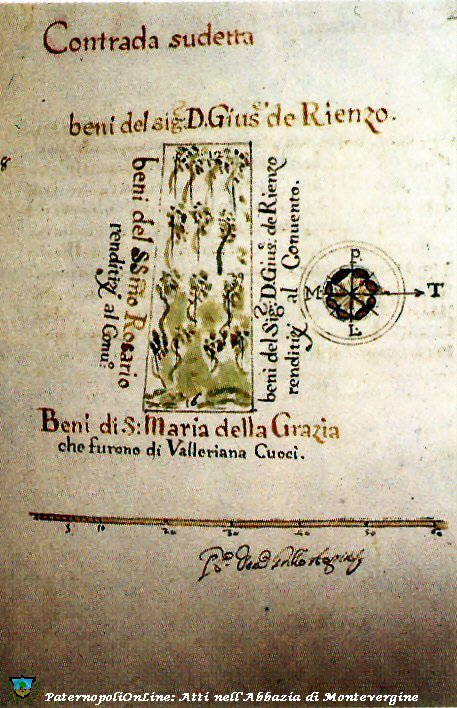 Contrada sudetta
beni del sig.r D. Gius.e de Rienzo.
8
beni del S.Smo Rosario
renditizÿ al Conu.o
beni del Sig.r D. Gius.e de Rienzo
renditizÿ al Conuento.
P
M
T
L
16
Beni di S: Maria della Grazia
che furono di Valleriana Cuoci.
5 10 20 30 40 50 60
PaternopoliOnLine: Atti nell'Abbazia di Montevergine